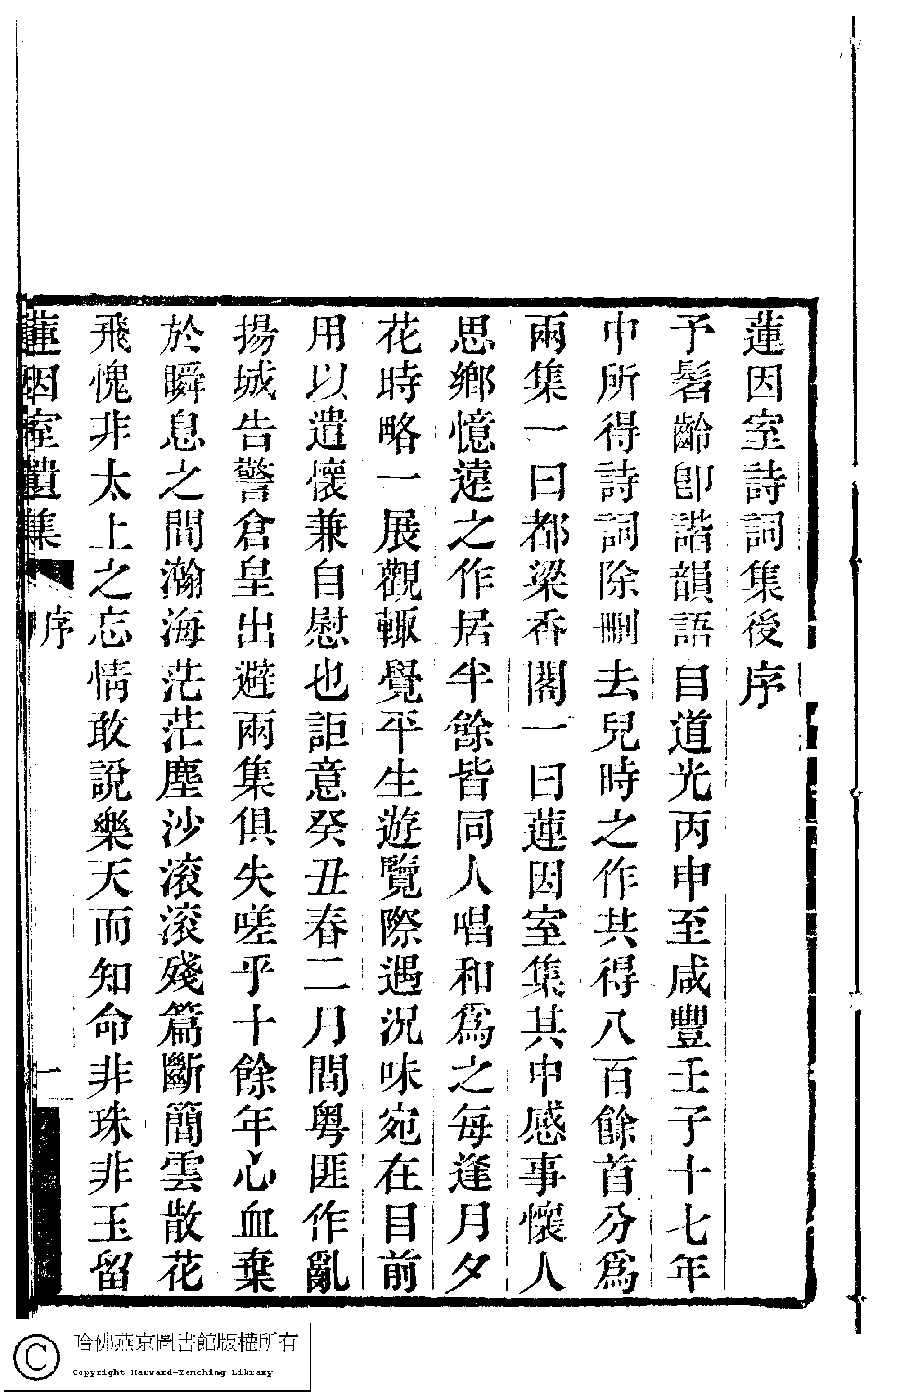 蓮因室詩詞集後序
予髫齡卽諧韻語自道光丙申至咸豐壬子十七年
中所得詩詞除刪去兒時之作共得八百餘首分爲
兩集一曰都梁香閣一曰蓮因室集其中感事懷人
思鄉憶遠之作居半餘皆同人唱和爲之每逢月夕
花時略一展觀輒覺平生遊覽際遇況味宛在目前
用以遣懷兼自慰也詎意癸丑春二月間粵匪作亂
揚城告警倉皇出避兩集俱失嗟乎十餘年心血棄
於瞬息之間瀚海茫茫塵沙滾滾殘篇斷簡雲散花
飛愧非太上之忘情敢說樂天而知命非珠非玉留
蓮因室遺集 序 一
哈佛燕京圖書館版權所有
Copyright Harvard-Yenching Library